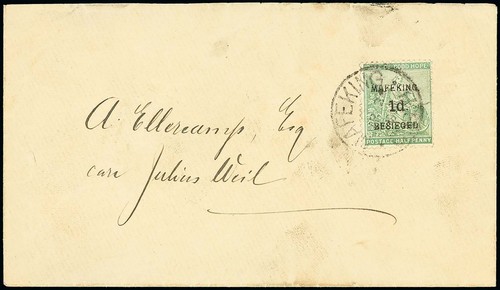 GOOD HOPE
MAFEKING
1d.
BESIEGED
POSTAGE HALF PENNY
MAFEKING
A. Ellercamp, Esq
care Julius Weil